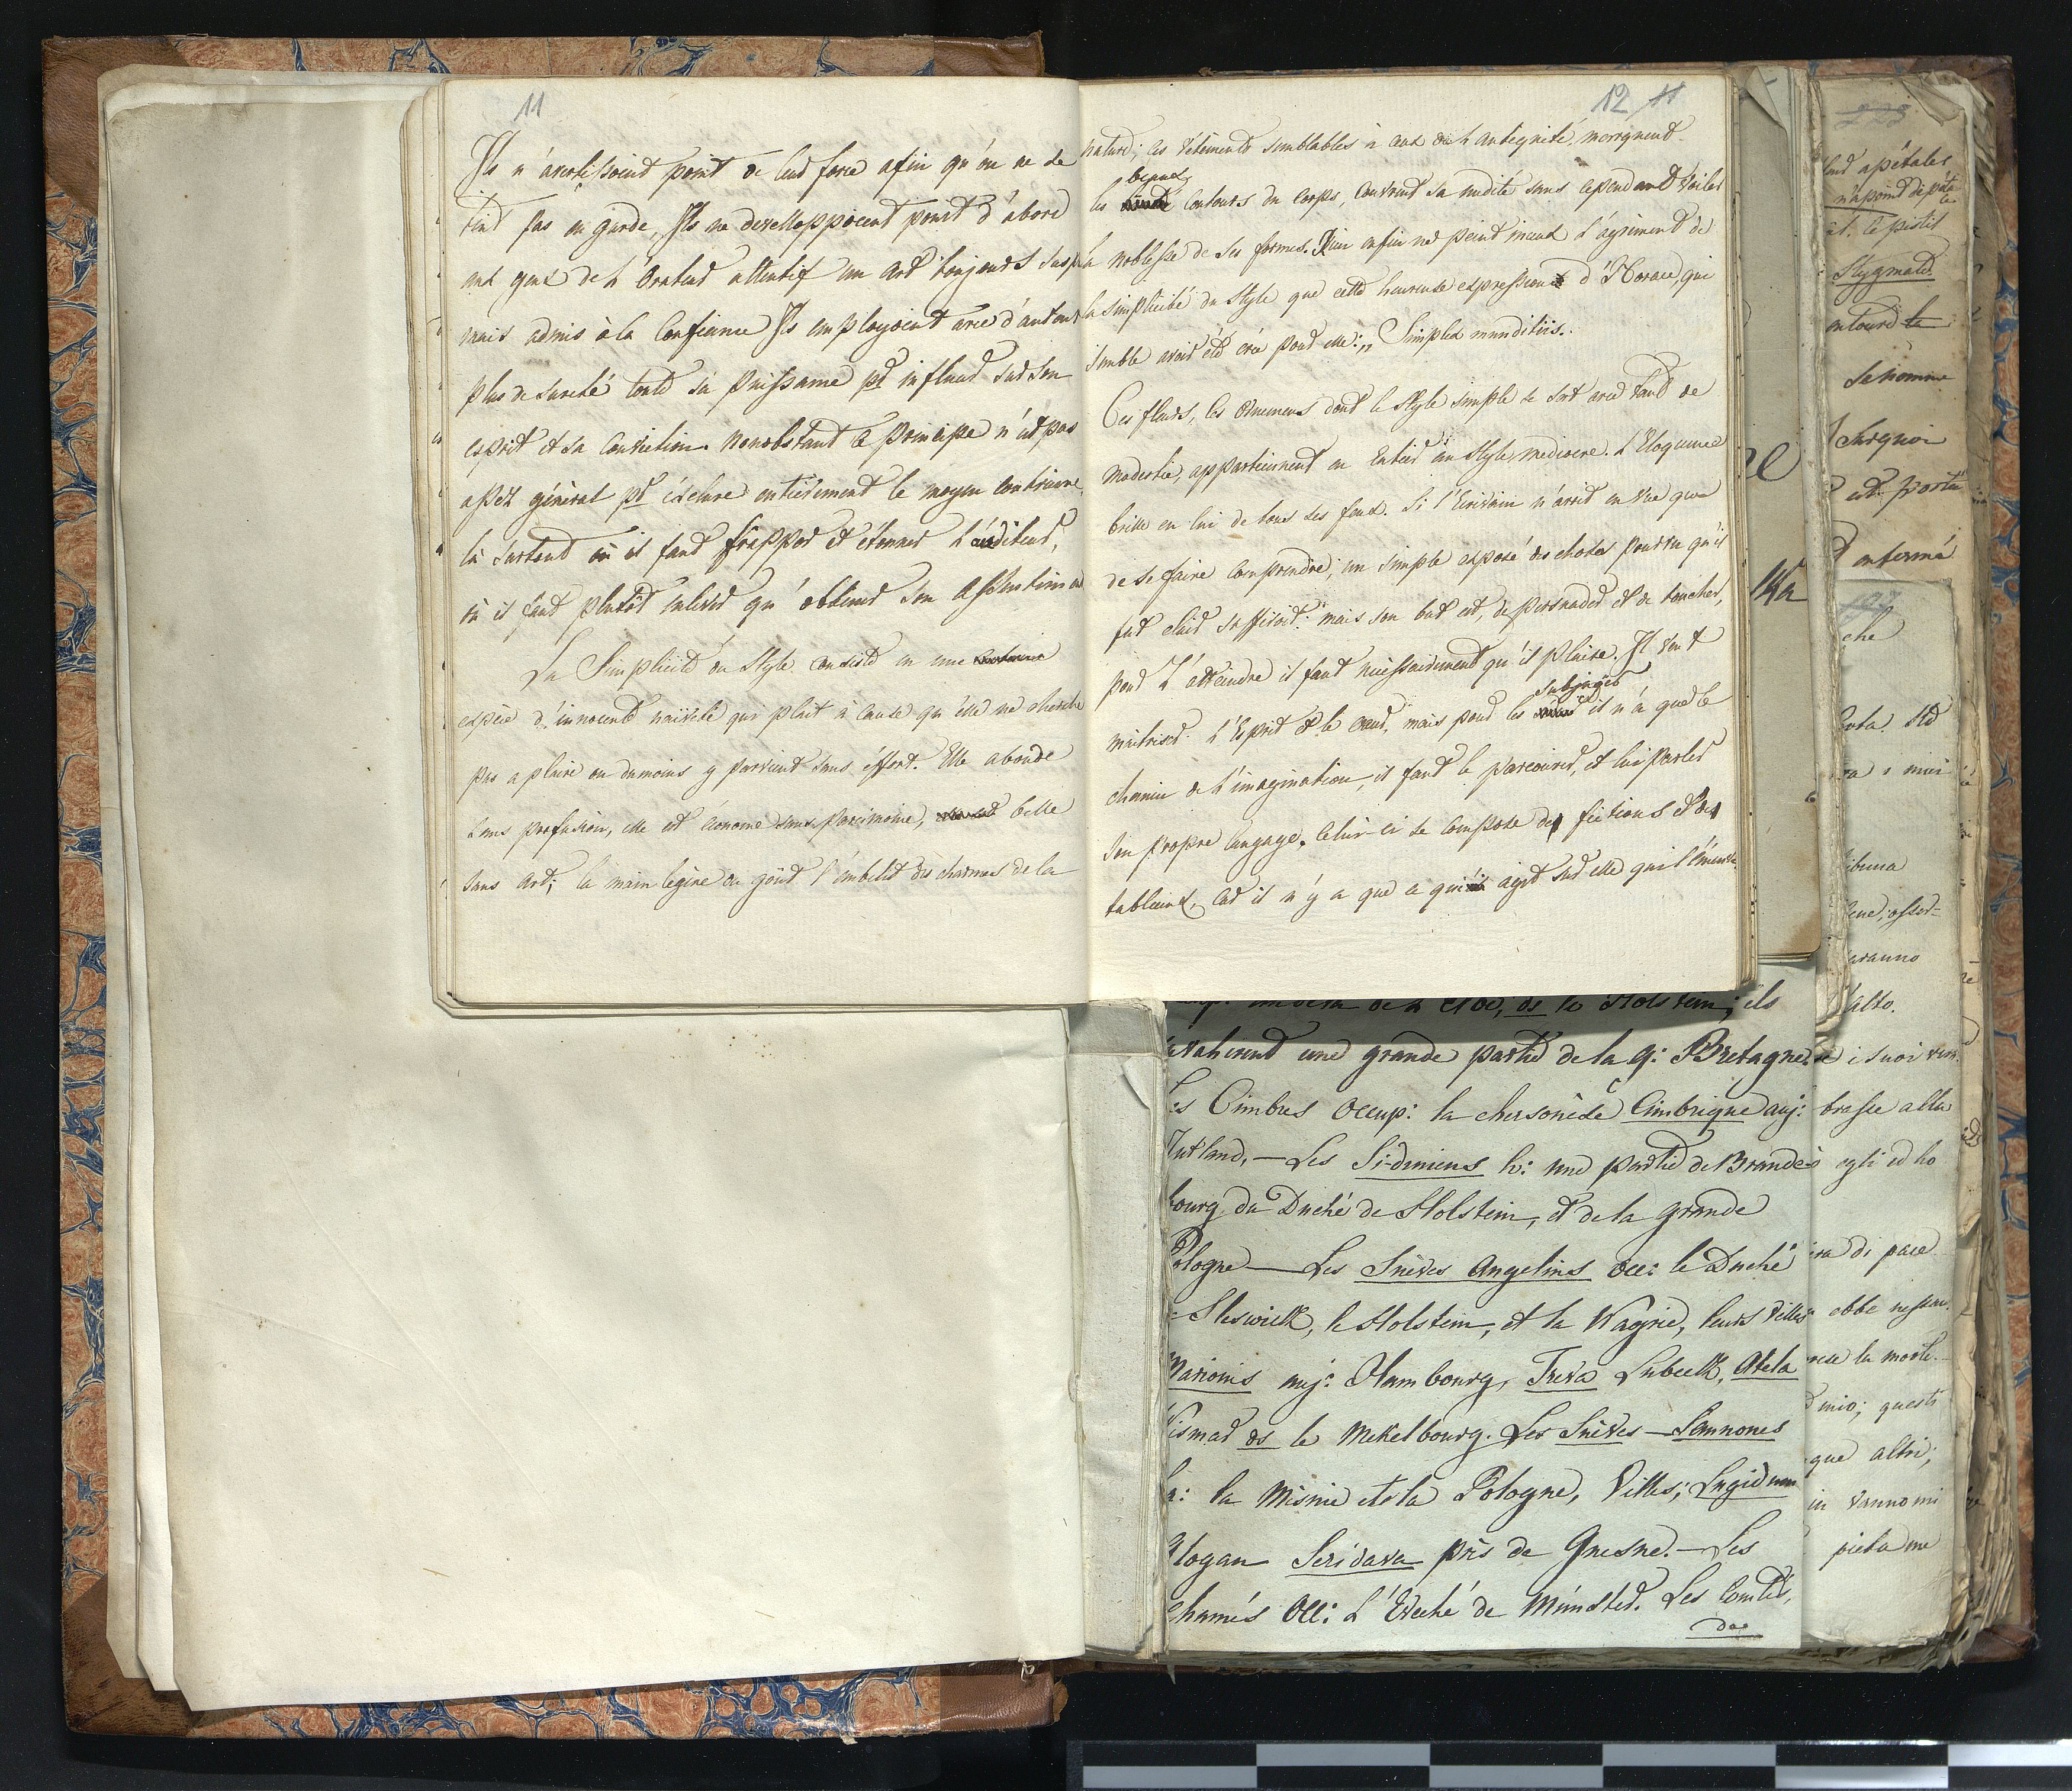 11
Ils n'avertissoient point de leur force afin qu'on ne se
tint pas en garde, Ils ne develloppoient point d'abord
aux yeux de l'Orateur attentif un art toujours susp
mais admis à la Confiance Ils employoient avec d'autant
plus de sureté toute sa puissance pr influer sur son
esprit et sa Conviction. Nonobstant ce principe n'est pas
assez général pr exclure entièrement le moyen Contraire,
là surtout où il faut frapper et étonner l'auditeur,
où il faut plutôt enlever qu'obtenir son Assentiment
La Simplicité du Style consiste en une
espèce d'innocente naïveté qui plait à cause qu'elle ne cherche
pas a plaire ou dumoins y parvient sans éffort. Elle abonde
sans profusion, elle est économe sans parcimonie, belle
sans Art; la main legère du goût l'embelit des charmes de la
12 11
nature; ces vêtements semblables à ceux de l'Antiquité,
beaux
les Contours du Corps, Couvrent sa nudité sans cependant voiler
la noblesse de ses formes. Rien enfin ne peint mieux l'agrément de
la simplicité du Style que cette heureuse expression d'Horace, qui
semble avoir été crée pour elle: „ Simplex munditiis.
Ces fleurs, les Ornemens dont le Style simple se sert avec tant de
modestie, appartiennent en Entier au Style mediocre. L'Eloquence
brille en lui de tous ses feux. Si l'Ecrivain n'avoit en vue que
de se faire comprendre, un simple exposé des choses pourvu qu'il
fut clair suffiroit: mais son but est, de persuader et de toucher,
pour l'atteindre il faut nécessairement qu'il plaise. Il veut
subjuguer
maitriser l'Esprit et le cœur, mais pour les il n'a que le
chemin de l'imagination, il faut le parcourir, et lui parler
son propre langage. Celui-ci se compose des fictions et des
tableaux, Car il n'y a que ce qui agit sur elle qui l'émeut
de le Holstein; ils
envahirent une grande partie de la g: Bretagne.
Les Cimbres Occup: la chersonèse Cimbrique auj:
Jutland, — Les Sidiniens h: une partie de Brande
bourg du Duché de Holstein, et de la grande
Pologne — Les Suèves Angelins Occ: le Duché
Sleswick, le Holstein, et la Wagrie, leurs Villes
Marionis auj: Hambourg, Treva Lubeck,
Wismar ds le Mekelbourg. Les Suèves — Semnones
la Misnie et de la Pologne, Villes; Lugidunum
Glogau Setidava près de Gnesne. — Les
Chamés Occ: l'Eveché de Münster. Les
apétales
le pistil
Stygmate
se nomme
14a
enfermé
che
l'alto.
brasse alla
egli ed ho
di pace
ebbe
la morte.
mio; questi
que altri;
in vanno mi
pieta me